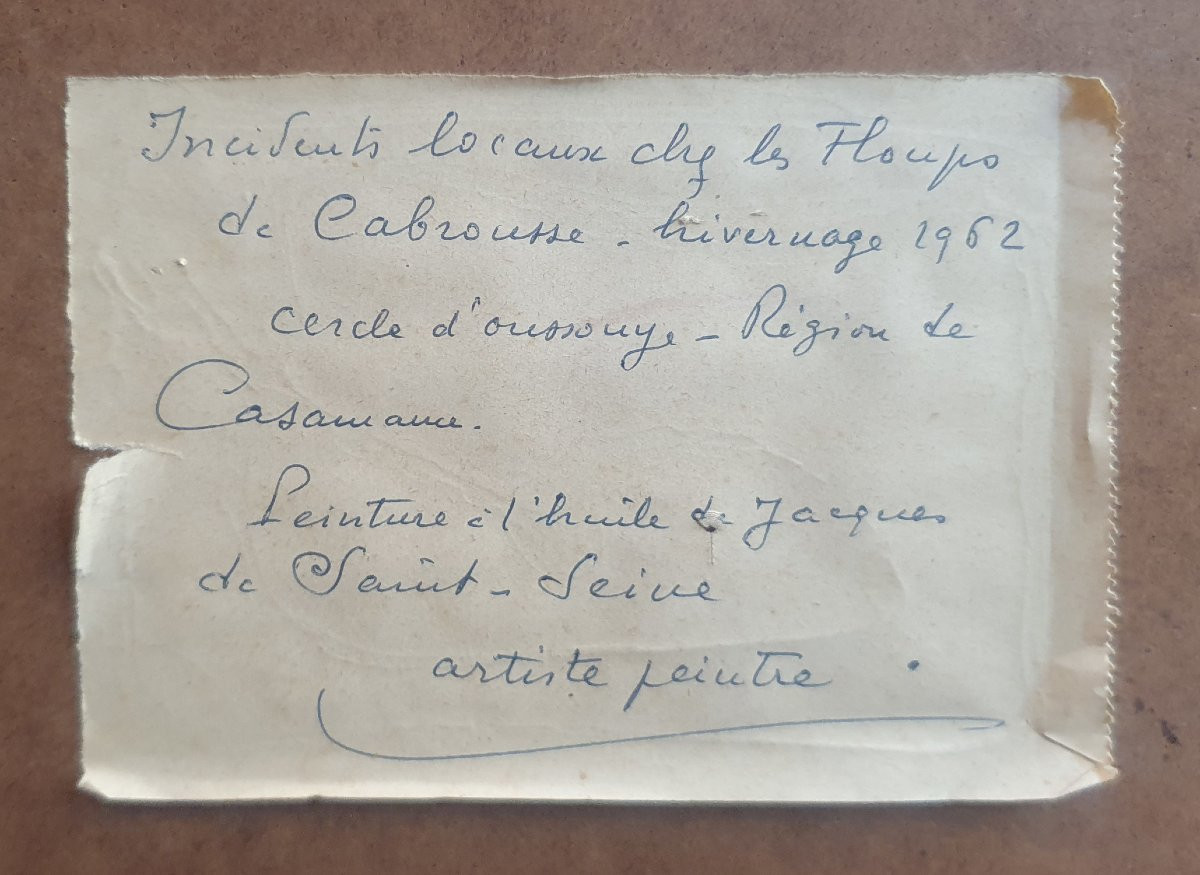 Incidents locaux chez les Floups
de Cabrousse - hivernage 1962
cercle d'oussouye - Région de
Casamance.
Peinture à l'huile de Jacques
de Saint-Seine
artiste peintre.